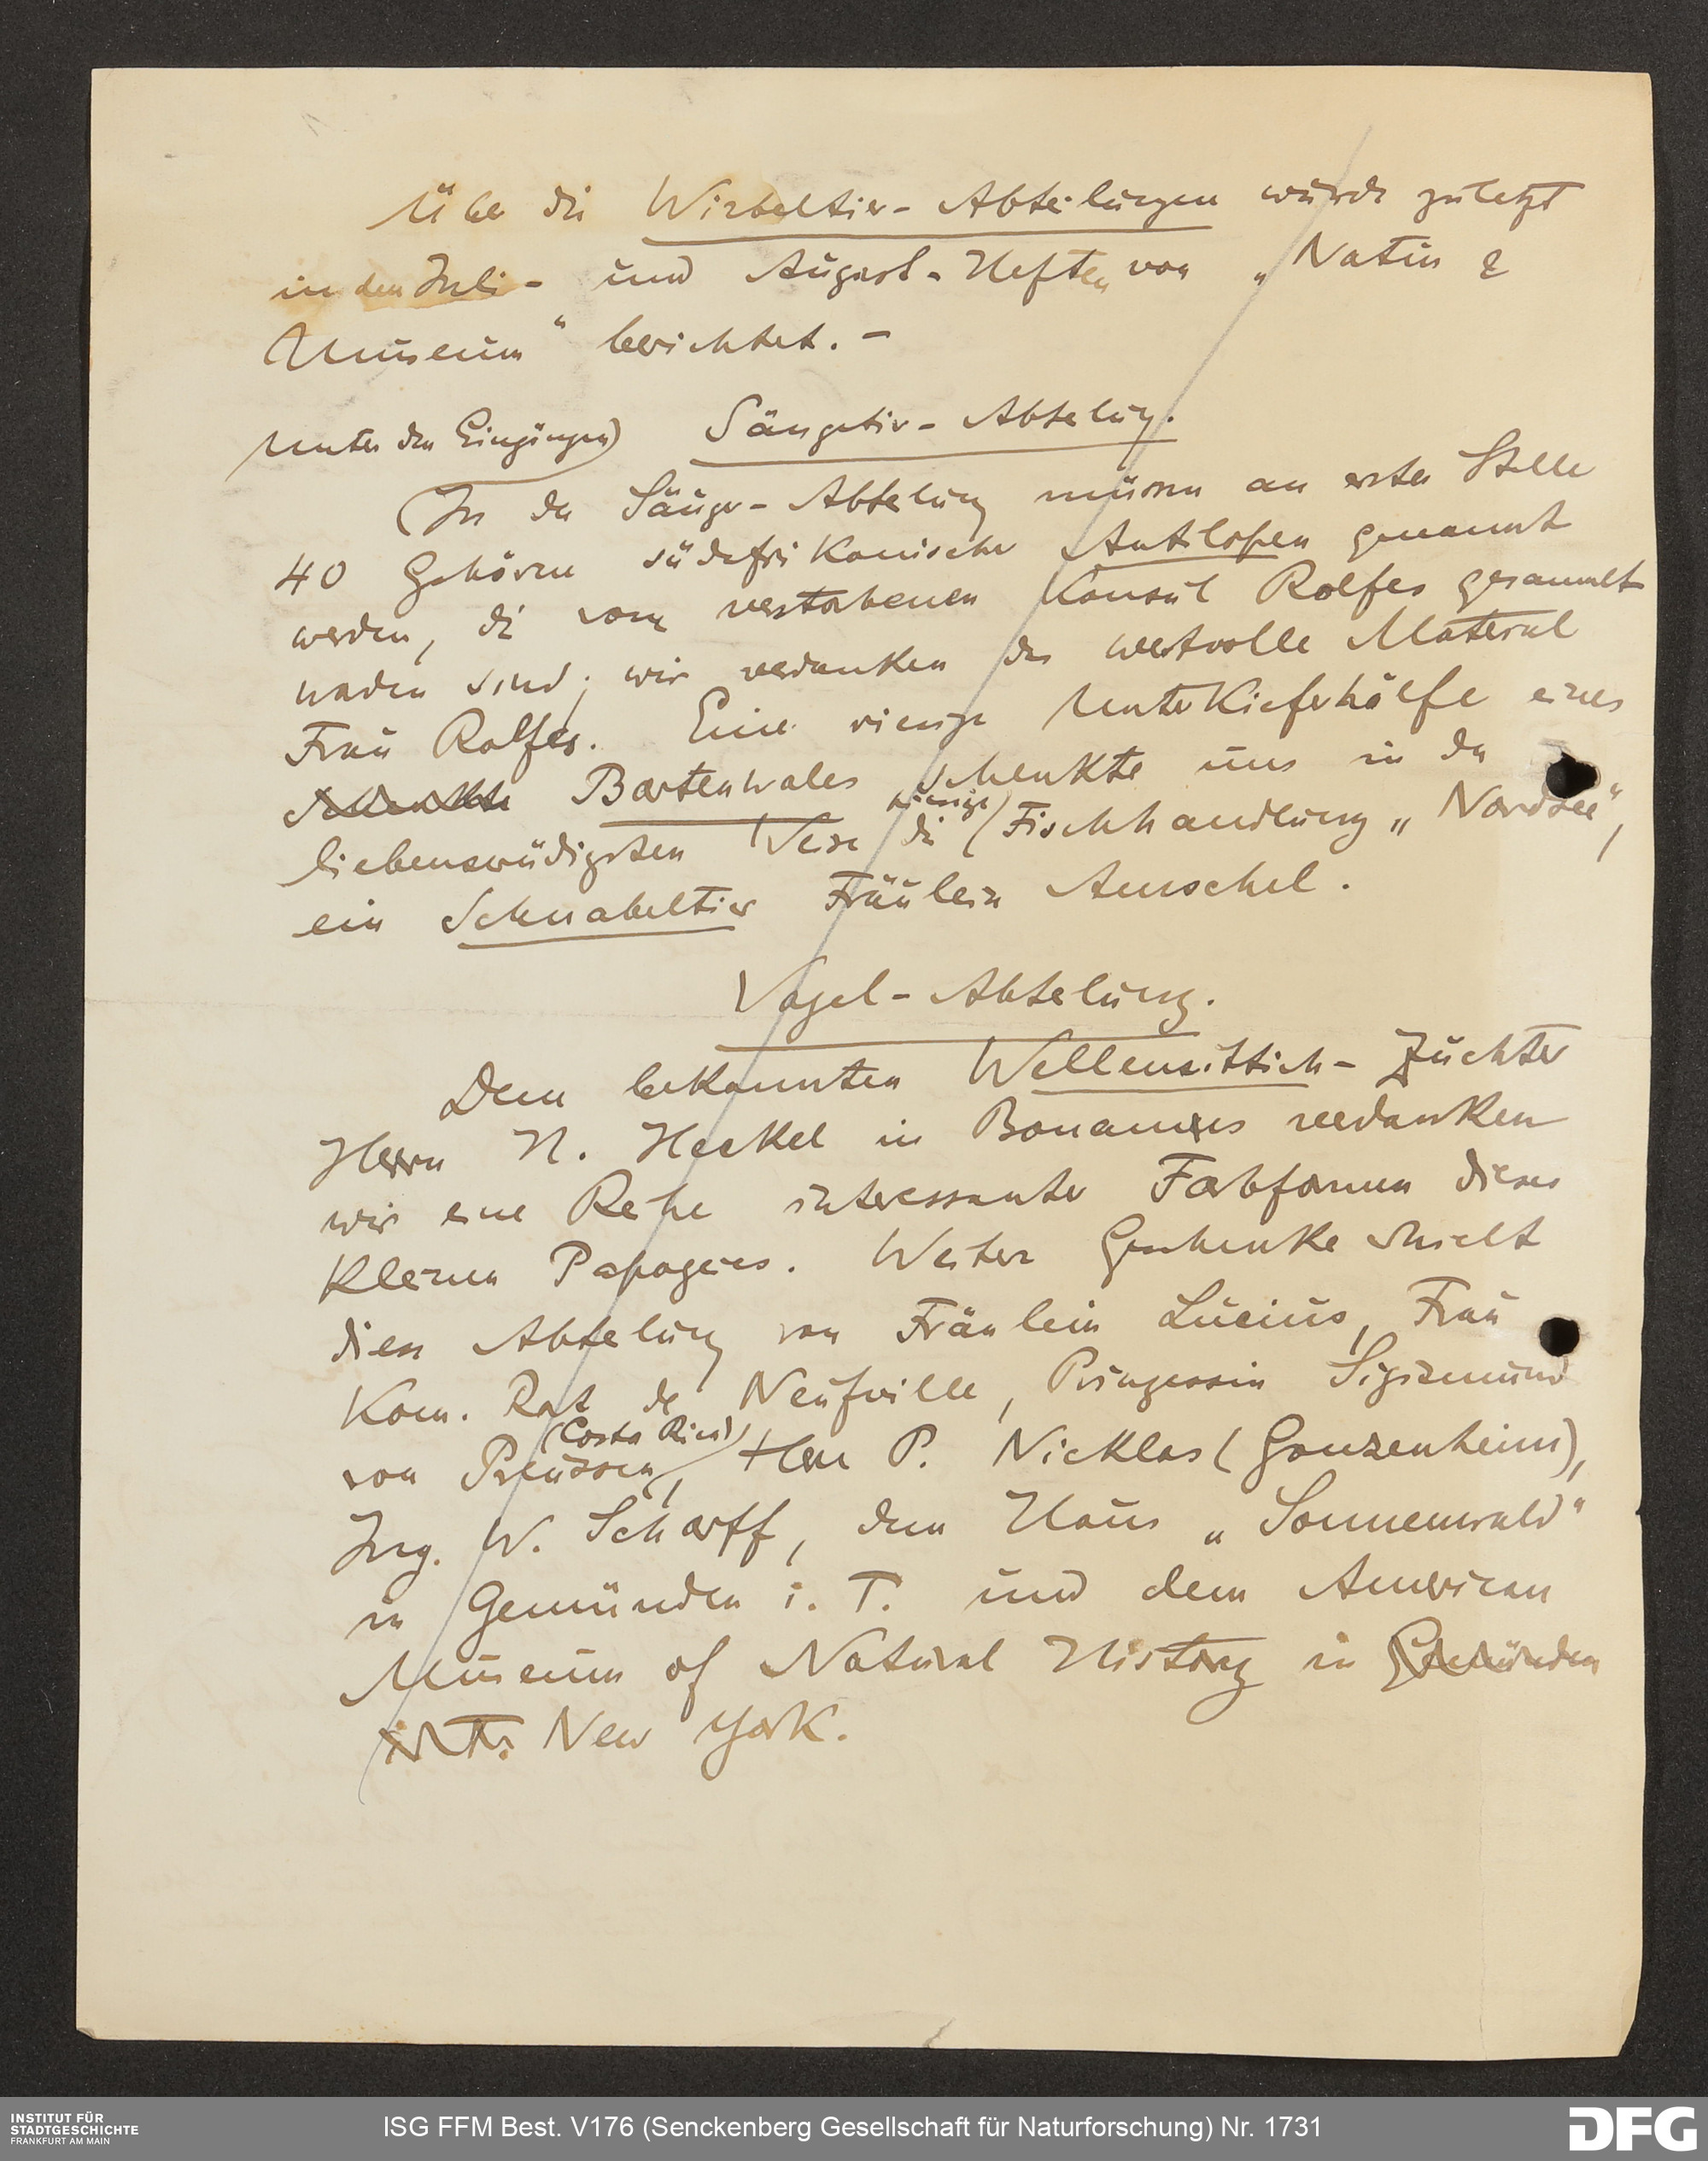 Über die Wirbeltier-Abteilungen wurde zuletzt
in den Juli- und August-Heften von „Natur &
Museum“ berichtet. –
Unter den Eingängen) Säugetier-Abteilung.
(In der Säuger-Abteilung müssen an erster Stelle
40 Gehörne südafrikanischer Antilopen genannt
werden, die vom verstorbenen Konsul Rolfes gesammelt
worden sind; wir verdanken das wertvolle Material
Frau Rolfes. Eine riesige Unterkieferhälfte eines
schenkte Bartenwales schenkte uns in der
hiesige)
liebenswürdigsten Weise die (Fischhandlung „Nordsee“,
ein Schnabeltier Fräulein Amschel.
Vogel-Abteilung.
Dem bekannten Wellensittich-Züchter
Herrn N. Heckel in Bonames verdanken
wir eine Reihe interessanter Farbformen dieses
kleinen Papageies. Weitere Geschenke erhielt
diese Abteilung von Fräulein Lucius, Frau
Kom. Rat de Neufville, Prinzessin Sigismund
(Costa Rica)
von Preussen, Herr P. Nicklas (Gonzenheim),
Ing. W. Scharff, dem Haus „Sonnenwald“
in Gemünden i. T. und dem American
Museum of Natural History in Gemünden
i. T. New York.
INSTITUT FÜR
STADTGESCHICHTE
FRANKFURT AM MAIN
ISG FFM Best. V176 (Senckenberg Gesellschaft für Naturforschung) Nr. 1731
DFG